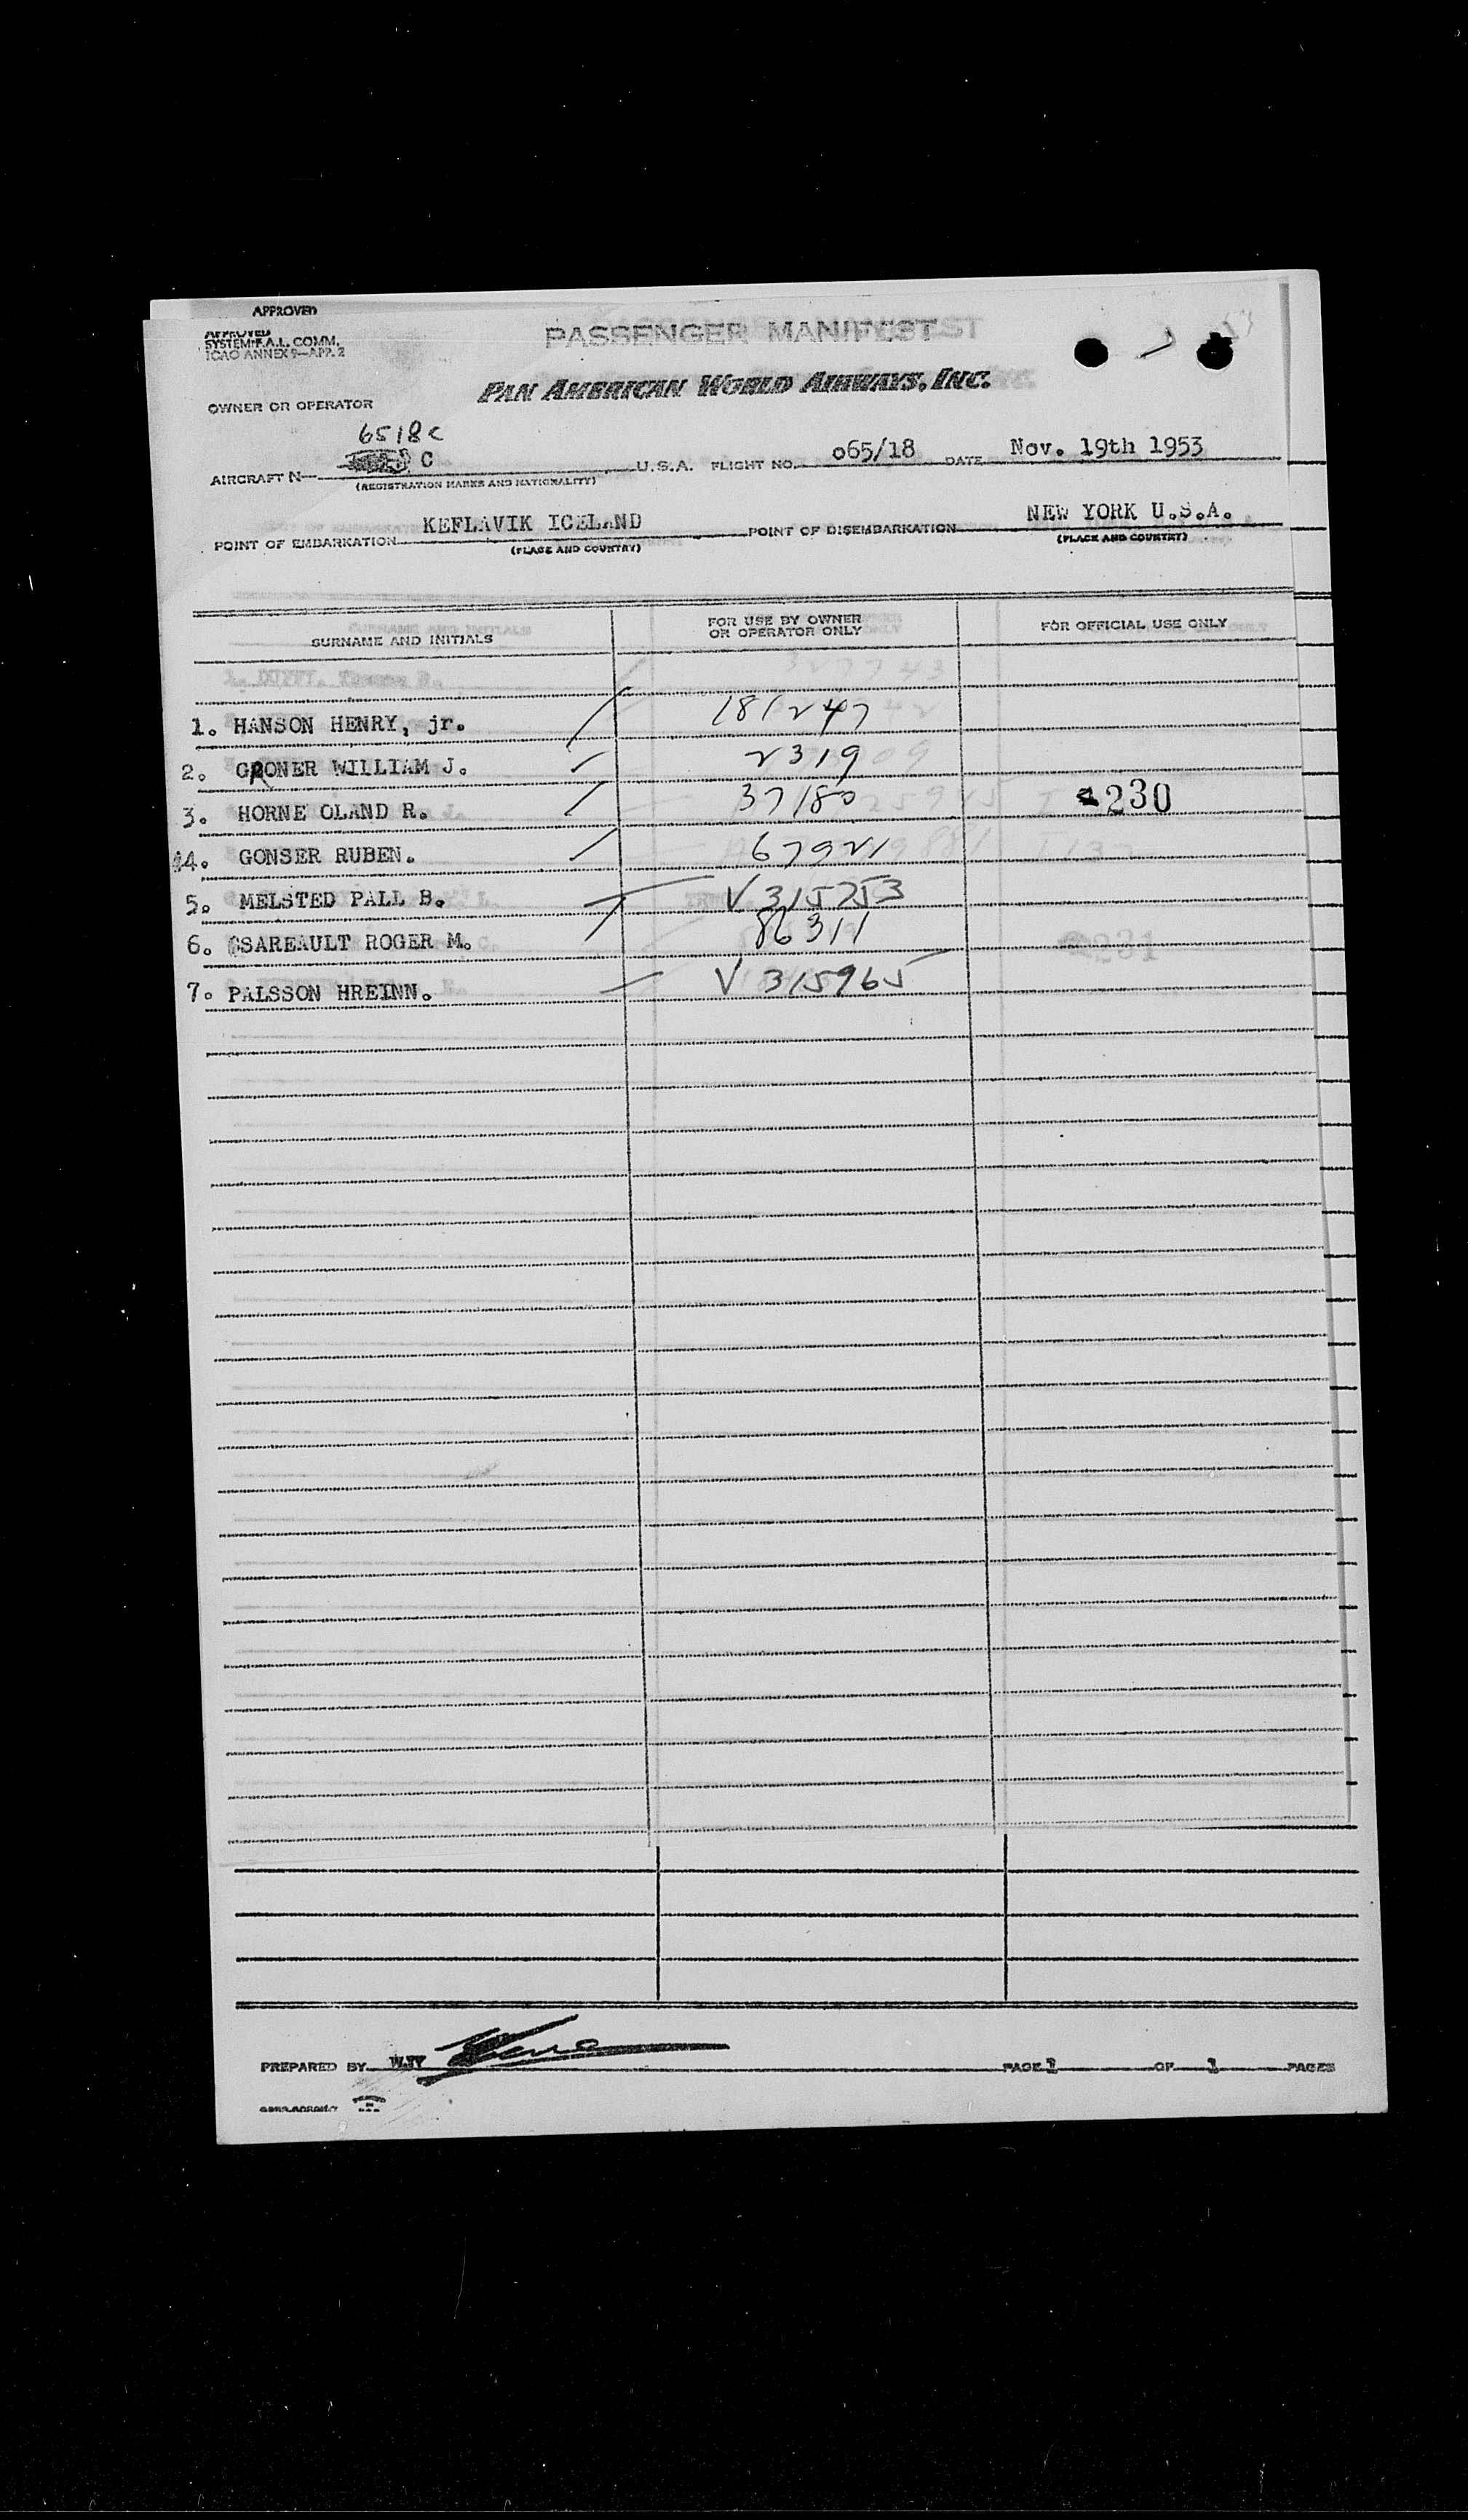 APPROVED
APPROVED
SYSTEM F.A.L. COMM.
ICAO ANNEX 9—APP. 2
PASSENGER MANIFEST
PAN AMERICAN WORLD AIRWAYS, INC.
OWNER OR OPERATOR
6518C
AIRCRAFT N— C U.S.A. FLIGHT NO. 065/18 DATE Nov. 19th 1953
(REGISTRATION MARKS AND NATIONALITY)
POINT OF EMBARKATION KEFLAVIK ICELAND POINT OF DISEMBARKATION NEW YORK U.S.A.
(PLACE AND COUNTRY) (PLACE AND COUNTRY)
SURNAME AND INITIALS FOR USE BY OWNER OR OPERATOR ONLY FOR OFFICIAL USE ONLY
1. HANSON HENRY, jr. 181247
2. GRONER WILLIAM J. 2319
3. HORNE OLAND R. 37180 230
4. GONSER RUBEN. 67921
5. MELSTED PALL B. V 315753
6. CSAREAULT ROGER M. 86311
7. PALSSON HREINN. V 315965
PREPARED BY PAGE 1 OF 1 PAGES